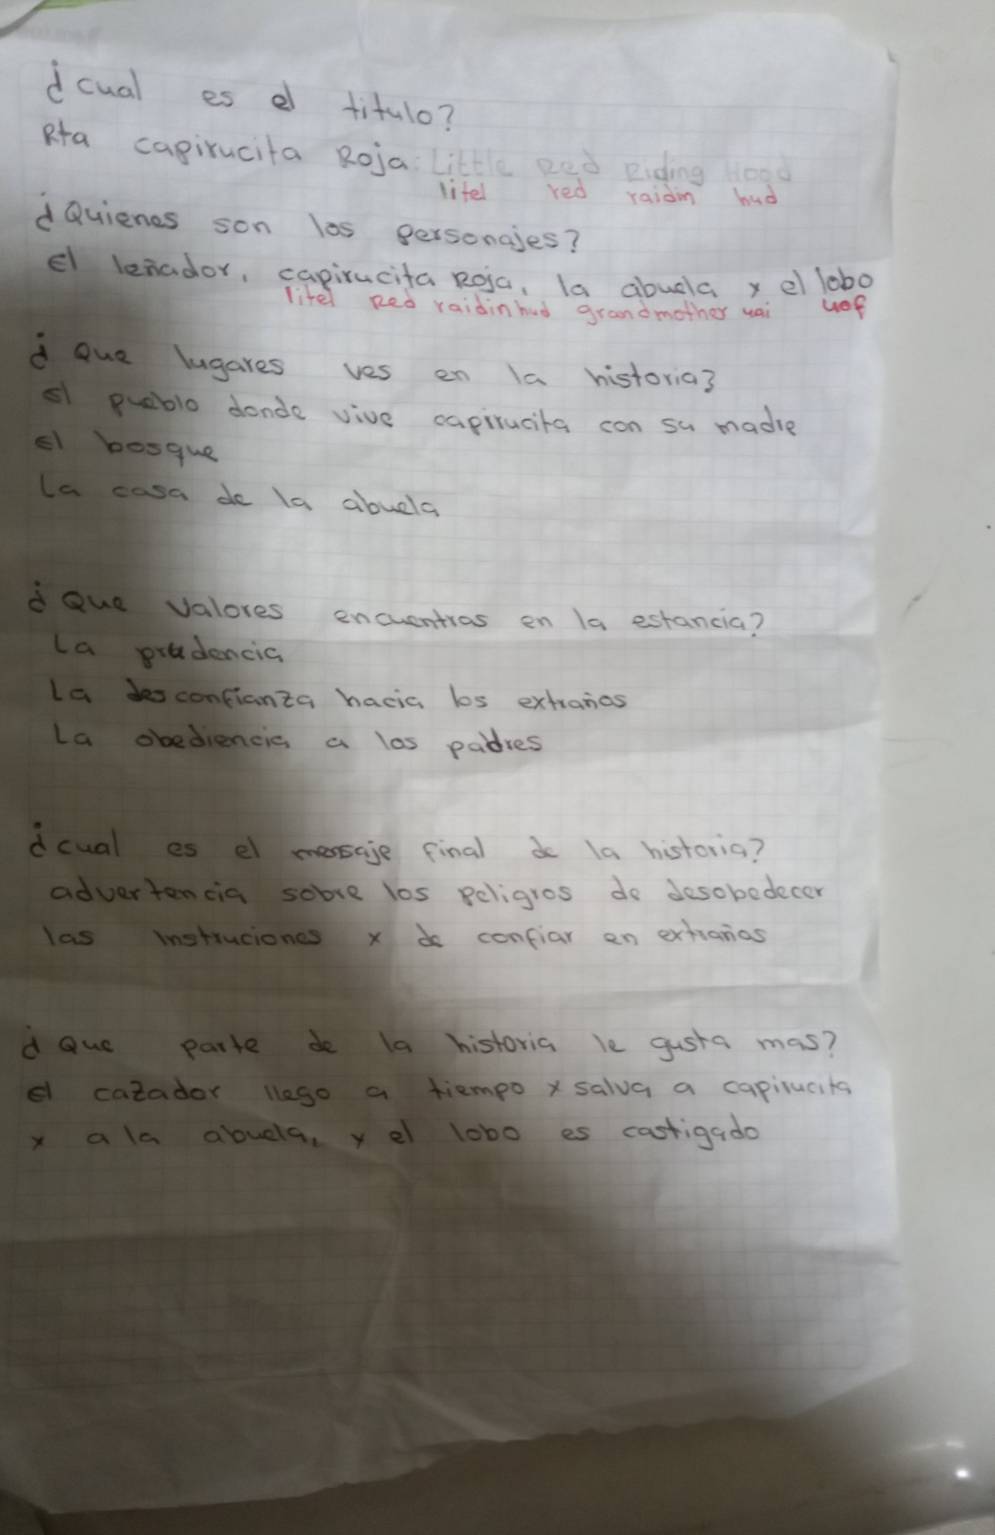 ¿cual es el titulo?
Rta capirucita Roja: Little Red Riding Hood
litel red raidin hud
¿Quienes son los personajes?
el leñador, capirucita Roja, la abuela y el lobo
litel Red raidin hud grandmother uai uof
¿Que lugares ves en la historia?
el pueblo donde vive capirucita con su madre
el bosque
la casa de la abuela
¿Que valores encuentras en la estancia?
La prudencia
La desconfianza hacia los extraños
La obediencia a los padres
¿cual es el mensaje final de la historia?
advertencia sobre los peligros de desobedecer
las instruciones y de confiar en extraños
¿Que parte de la historia le gusta mas?
el cazador llego a tiempo y salva a capirucita
y a la abuela, y el lobo es castigado